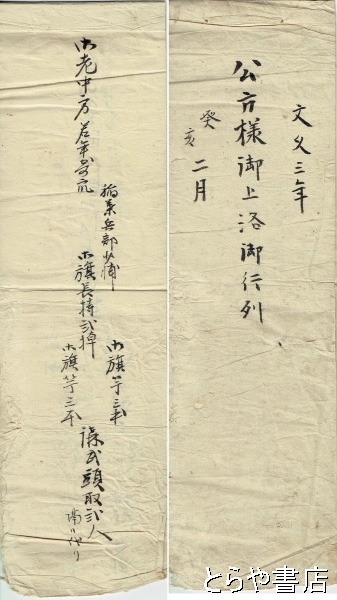 文久三年
公方様御上洛御行列
癸亥
二月
御老中方若年寄衆
稲葉兵部少輔
御旗長持弐棹
御旗竿三本
御旗竿三本
講武頭取弐人
とらや書店